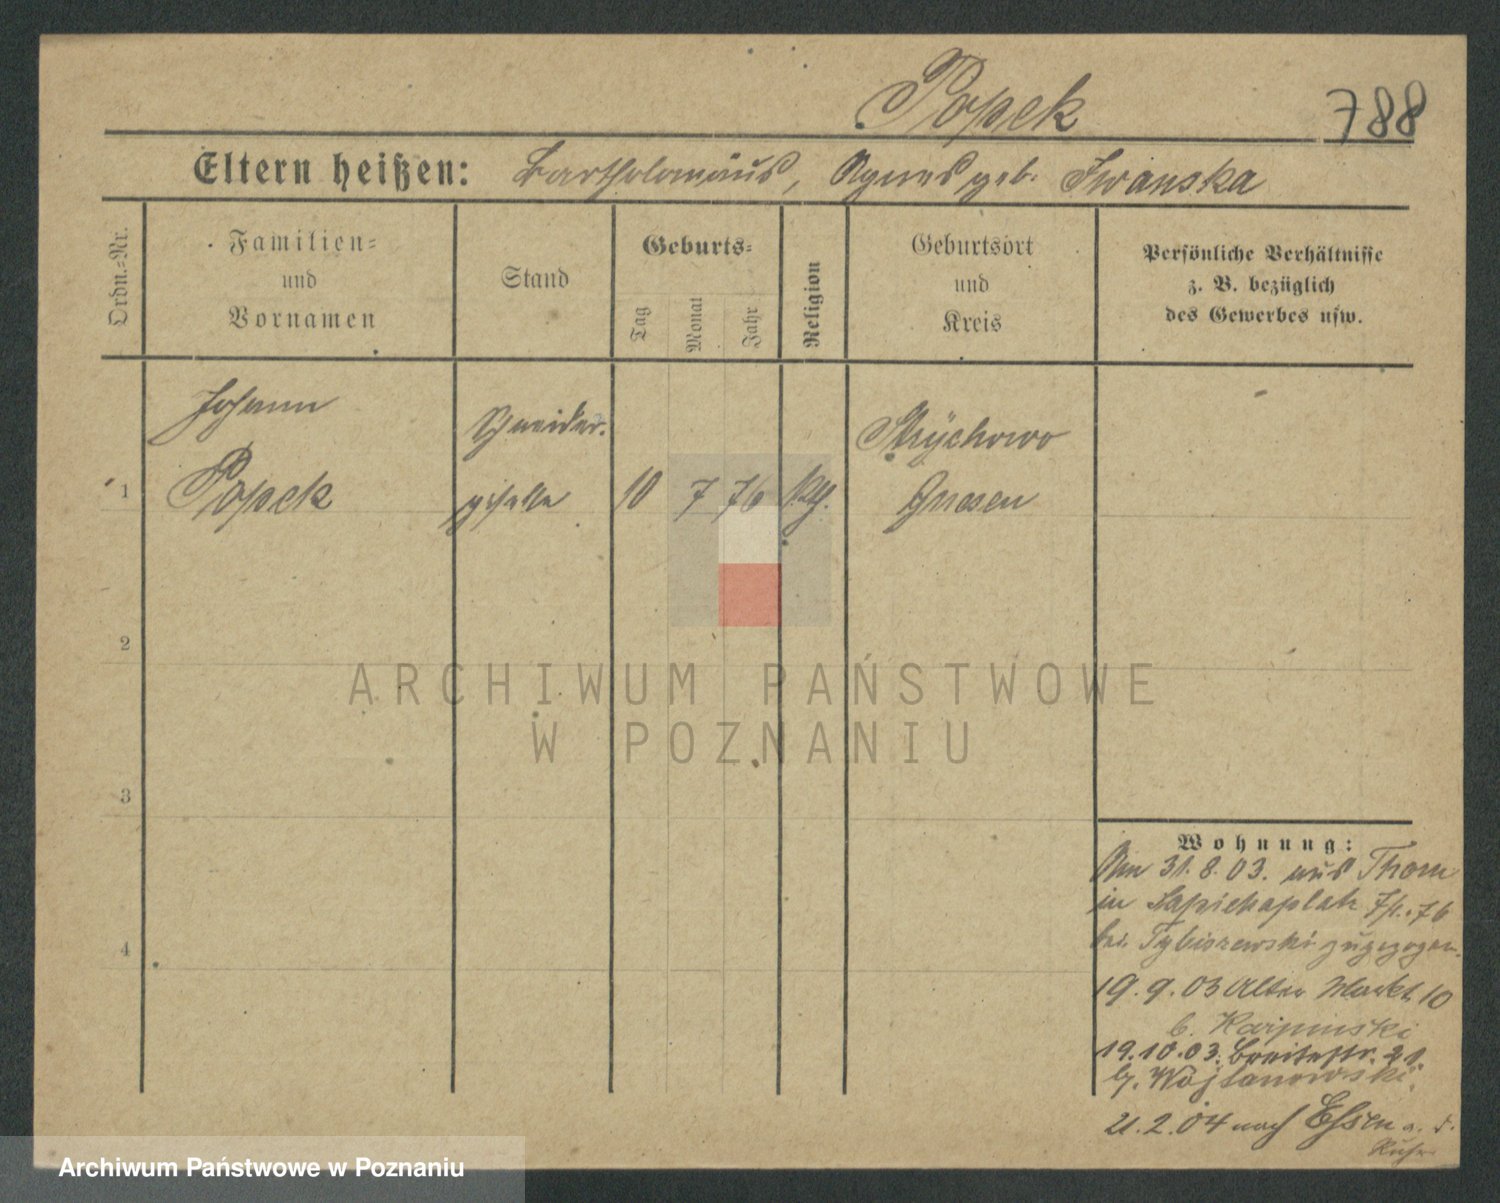 Popek
788
Eltern heißen: Bartholomäus, Agnes geb. Iwanska
Ordn.-Nr.
Familien-
und
Vornamen
Stand
Geburts-
Tag
Monat
Jahr
Religion
Geburtsort
und
Kreis
Persönliche Verhältnisse
z. B. bezüglich
des Gewerbes usw.
Johann Schneider- Strychowo
1 Popek geselle 10 7 76 kth. Gnesen
2
3
4
ARCHIWUM PAŃSTWOWE
W POZNANIU
Wohnung:
Am 31.8.03. aus Thorn
in Sapiehaplatz 76
bei Tybiszewski zugezogen.
19.9.03 Alter Markt 10
b. Karpinski
19.10.03. Breitestr. 21.
b. Wojtanowski.
21.2.04 nach Essen a. d.
Ruhr
Archiwum Państwowe w Poznaniu